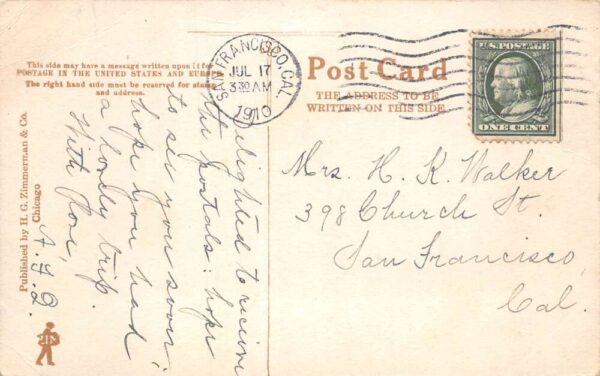 This side may have a message written upon it for
POSTAGE IN THE UNITED STATES AND EUROPE
The right hand side must be reserved for stamp
and address.
SAN FRANCISCO, CAL.
JUL 17
3 30 AM
1910
Post Card
THE ADDRESS TO BE
WRITTEN ON THIS SIDE
U.S. POSTAGE
ONE CENT
Delighted to receive
the postals: hope
to see you soon
hope you had
a lovely trip.
With love,
A.
Mrs. H. K. Walker
398 Church St.
San Francisco
Cal.
Published by H. G. Zimmerman & Co.
Chicago
ZIM